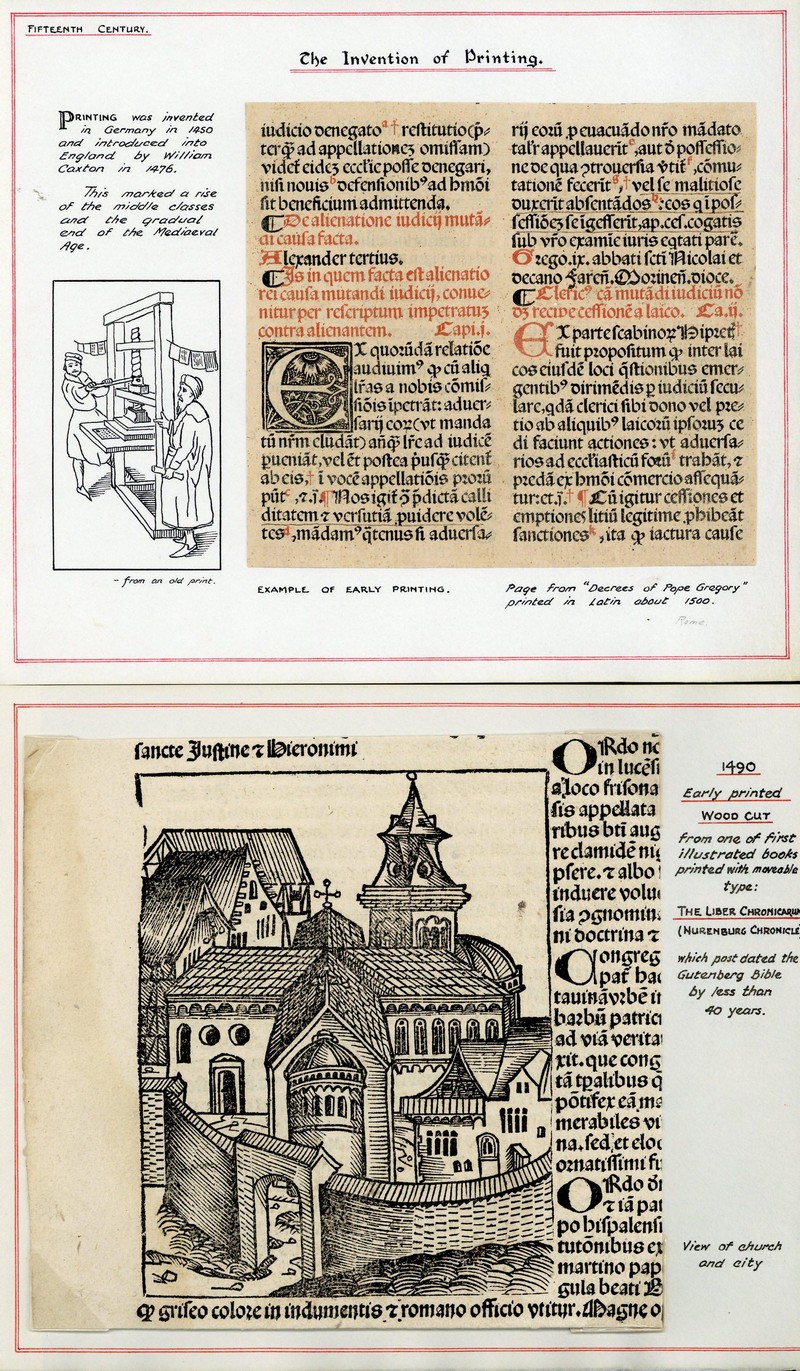 FIFTEENTH CENTURY.
The Invention of Printing.
PRINTING was invented
in Germany in 1450
and introduced into
England by William
Caxton in 1476.
This marked a rise
of the middle classes
and the gradual
end of the Mediaeval
Age.
– from an old print.
iudicio denegato
ter ad appellationeʒ omissam)
eideʒ posse denegari,
nisi nouis
sit beneficium admittenda.
De alienatione iudicij mutā⸗
di causa facta.
Alexander tertius.
Is in quem facta est alienatio
rei causa mutandi iudicij, conue⸗
nitur per rescriptum impetratuʒ
contra alienantem. Capi.j.
EX quorūdā relatiōe
audiuimꝰ cū aliq
lr̄as a nobis cōmis⸗
siōis īpetrāt: aduer⸗
sarij eoꝝ(vt manda
tū nr̄m eludāt) lr̄e ad iudicē
pueniāt, vel postea citent
ab eis, ī vocē appellatiōis
Nos igit calli
ditatem ⁊ versutiā puidere volē⸗
tes, si aduersa⸗
rij eoꝝū euacuādo nr̄o mādato
appellauerīt, aut possessio⸗
ne de qua, cōmu⸗
tationē fecerīt, vel se malitiose
duxerīt absentādos: eos q ī pos⸗
sessiōeʒ se īgesserīt, cogatis
sub vr̄o examīe iuris eqtati parē.
Grego.ix. abbati scti Nicolai et
decano Morinen̄. dioce.
Clericꝰ cā mutādi iudiciū nō
recipe cessionē a laico. Ca.ij.
EX parte scabinoꝝ
fuit propositum inter lai
cos eiusdē loci q̄stionibus emer⸗
gentibꝰ dirimēdis ꝑ iudiciū secu⸗
lare, qdā clerici sibi dono vel pre⸗
tio ab aliquibꝰ laicoꝝ ipsoꝝ ce
di faciunt actiones: vt aduersa⸗
rios ad forū trabāt, ⁊
predā ex cōmercio assequā⸗
tur: et.j. Cū igitur cessiones et
emptiones litiū legitime phibeāt
sanctiones, ita iactura cause
EXAMPLE OF EARLY PRINTING.
Page from "Decrees of Pope Gregory"
printed in Latin about 1500.
Rome.
sancte Justine ⁊ Hieronimi
ORdo
in lucēsi
a loco frisona
sis appellata
ribus bti aug
re clamidē
psere. ⁊ albo
induere
sia ꝯgnomin
ni doctrina ⁊
Congreg
pat̄
tauinā vrbē
barbū patrici
ad viā verita
xit. que cong
tā tpalibus q
pōtifex eā
merabiles vi
na. sed et eloq
ornatissimi
ORdo
⁊ iā pat
po hispalensi
tutōnibus ex
martino pap
gula beati
griseo colore in indumentis ⁊ romano officio vtitur. Magne
1490
Early printed
WOOD CUT
from one of first
illustrated books
printed with moveable
type:
THE LIBER CHRONICARUM
(NURENBURG CHRONICLE
which post dated the
Gutenberg Bible
by less than
40 years.
View of church
and city